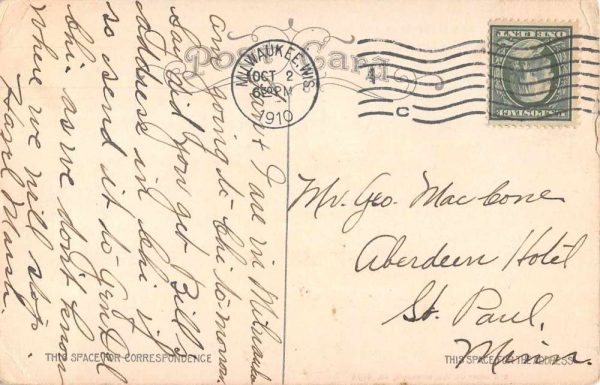 Post Card
MILWAUKEE, WIS.
OCT 2
PM
1910
4
C
U.S. POSTAGE
ONE CENT
& I are in Milwaukee
going to Chi tomorrow.
did you get Bill's
address in Chi if
so send it to Gen Del
Chi as we don't know
where we will stop.
Marsh.
Mr. Geo. MacCone
Aberdeen Hotel
St. Paul,
Minn.
THIS SPACE FOR CORRESPONDENCE
THIS SPACE FOR THE ADDRESS